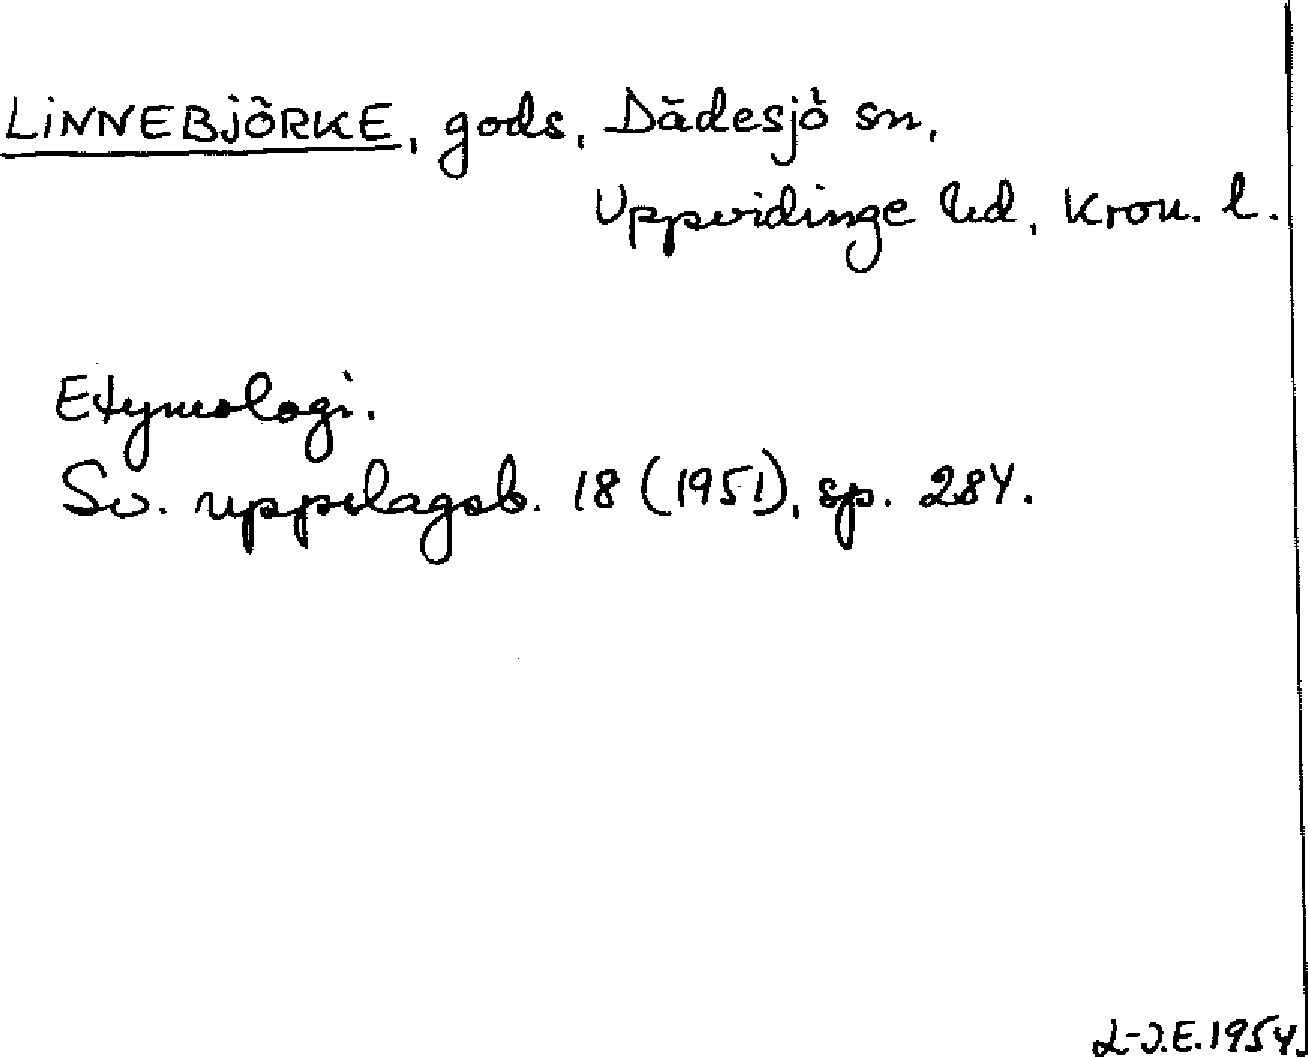 LINNEBJÖRKE, gods, Dädesjö sn,
Uppvidinge hd, Kron. l.
Etymologi.
Sv. uppslagsb. 18 (1951), sp. 284.
L-J.E. 1954.